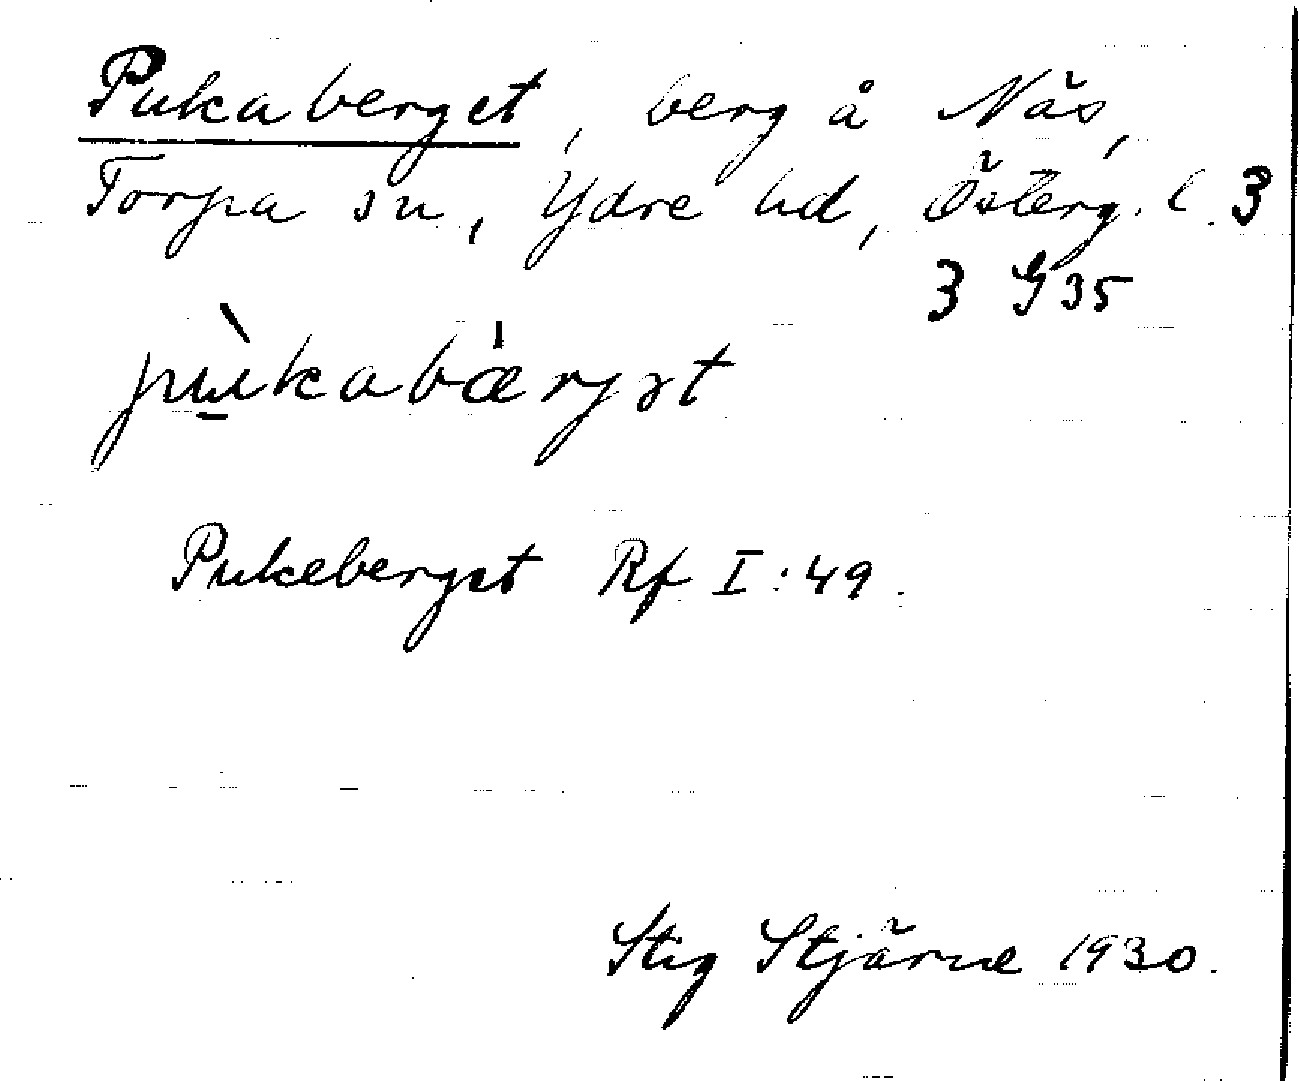 Pukaberget, berg å Näs,
Torpa sn, Ydre hd, Österg. l. 3
3 G 35
pɯ̱̀kabæ̍rjət
Pukeberget Rf I:49.
Stig Stjärne 1930.